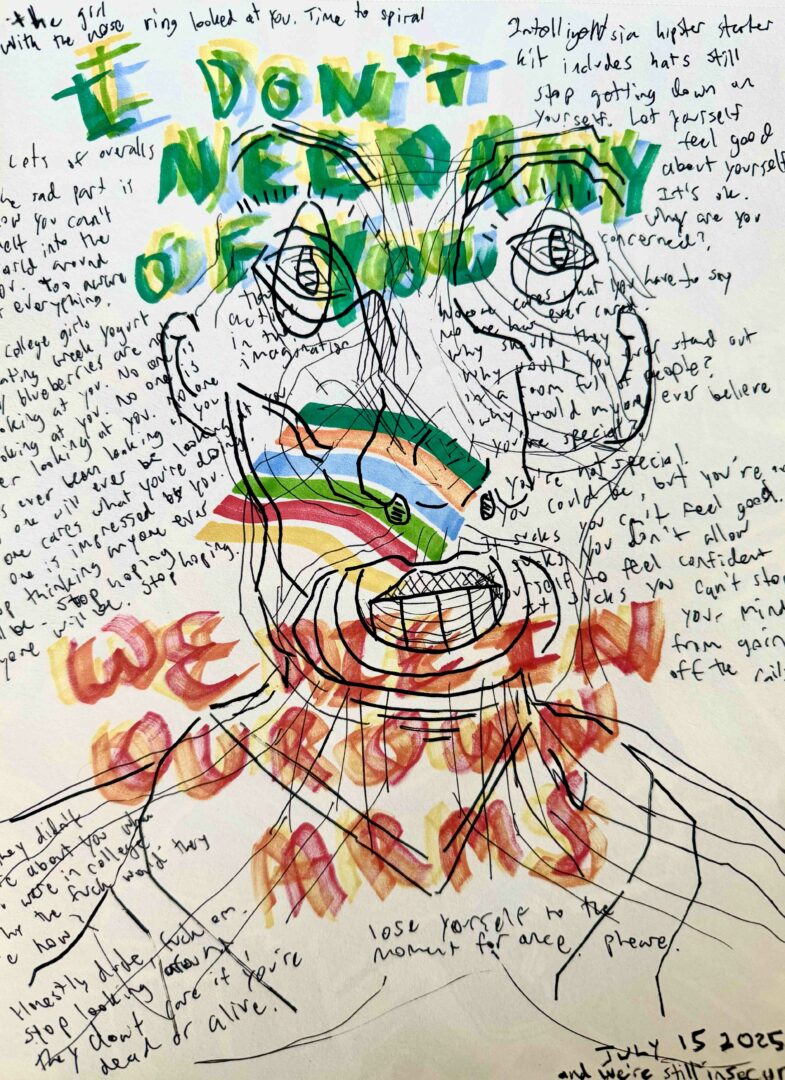 the girl
with the nose ring looked at you. Time to spiral
Intelligentsia hipster starter
kit includes hats still
stop getting down on
yourself. Let yourself
feel good
about yourself
It's ok.
Why are you
concerned?
I DON'T
NEED ANY
OF YOU
Lots of overalls
sad part is
how you can't
melt into the
world around
you. too aware
everything.
college girls
eating week yogurt
w/ blueberries are not
looking at you. No one is
looking at you. No one
ever looking at you.
has ever been looking at you
one will ever be looking at you
one cares what you're doing
one is impressed by you.
stop thinking anyone ever
will be. Stop hoping
anyone will be. Stop hoping.
the
action
in the
imagination
No one cares what you have to say
No one has ever cared
Why should they
Why would you ever stand out
in a room full of people?
Why would anyone ever believe
you're special?
You're not special.
You could be, but you're not
sucks you can't feel good.
sucks you don't allow
yourself to feel confident
It sucks you can't stop
your mind
from going
off the rails
WE DIE IN
OUR OWN
ARMS
they didn't
care about you when
you were in college
why the fuck would they
care now?
Honestly dude, fuck em.
stop looking around
They don't care if you're
dead or alive.
lose yourself to the
moment for once. please.
JULY 15 2025
and we're still insecure